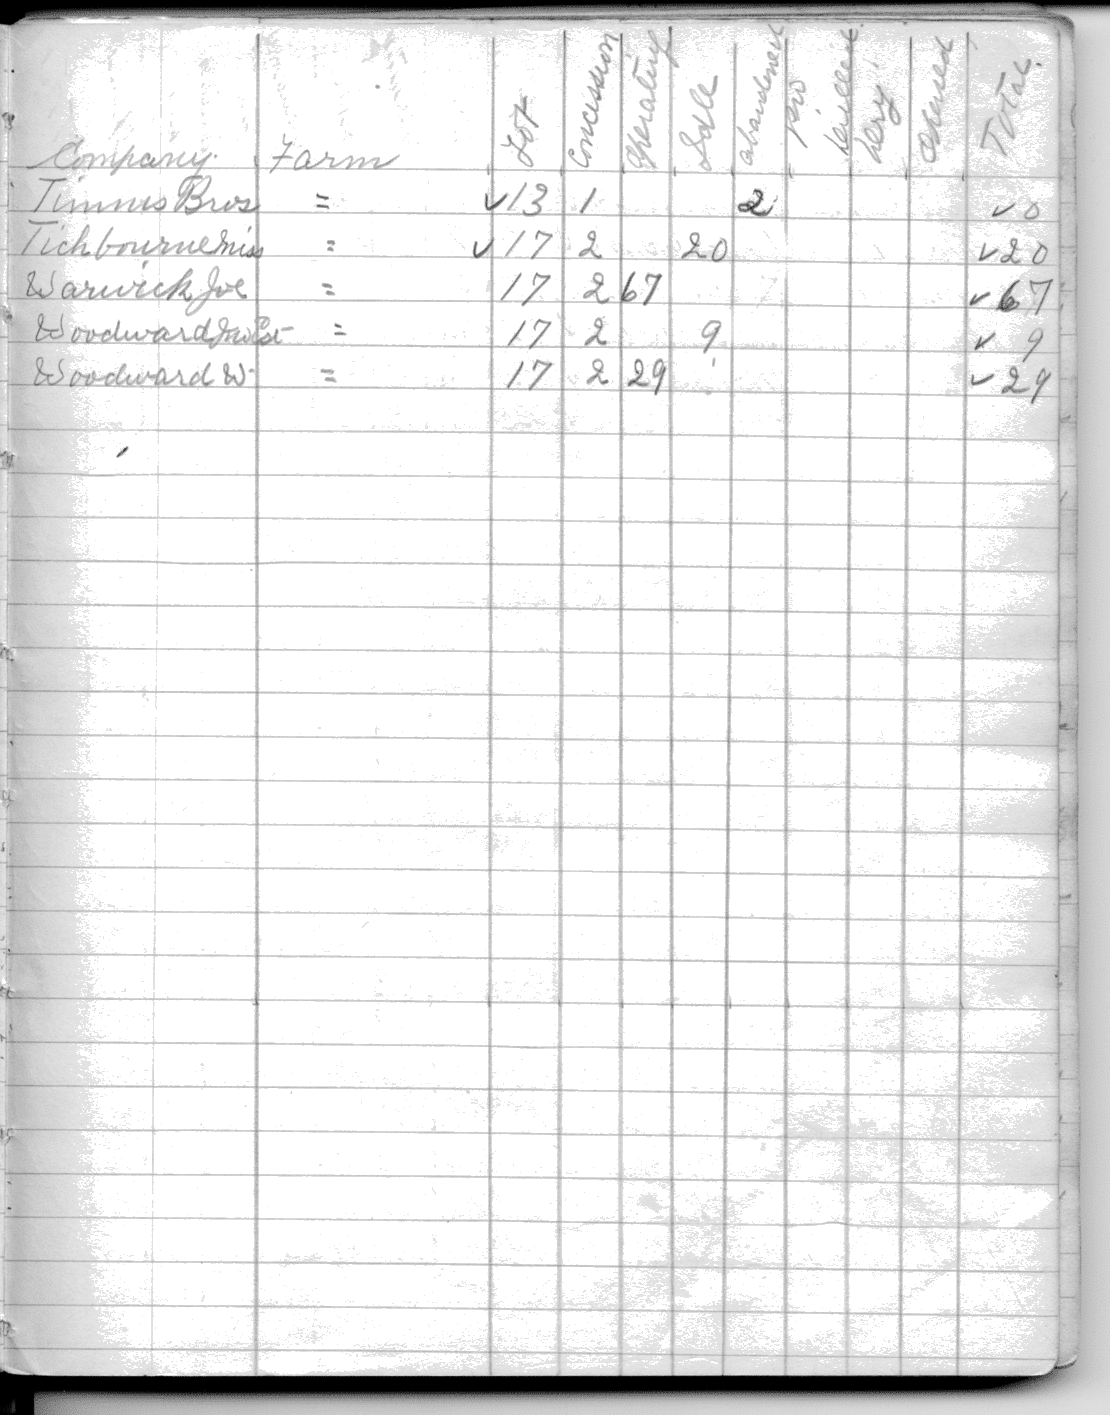 Company. Farm Lot Concession Operating Idle abandoned Total.
Timmis Bros = ✓13 1 2 ✓0
Tichbourne Miss = ✓17 2 20 ✓20
Warwick Joe = 17 2 67 ✓67
Woodward Est = 17 2 9 ✓9
Woodward W = 17 2 29 ✓29